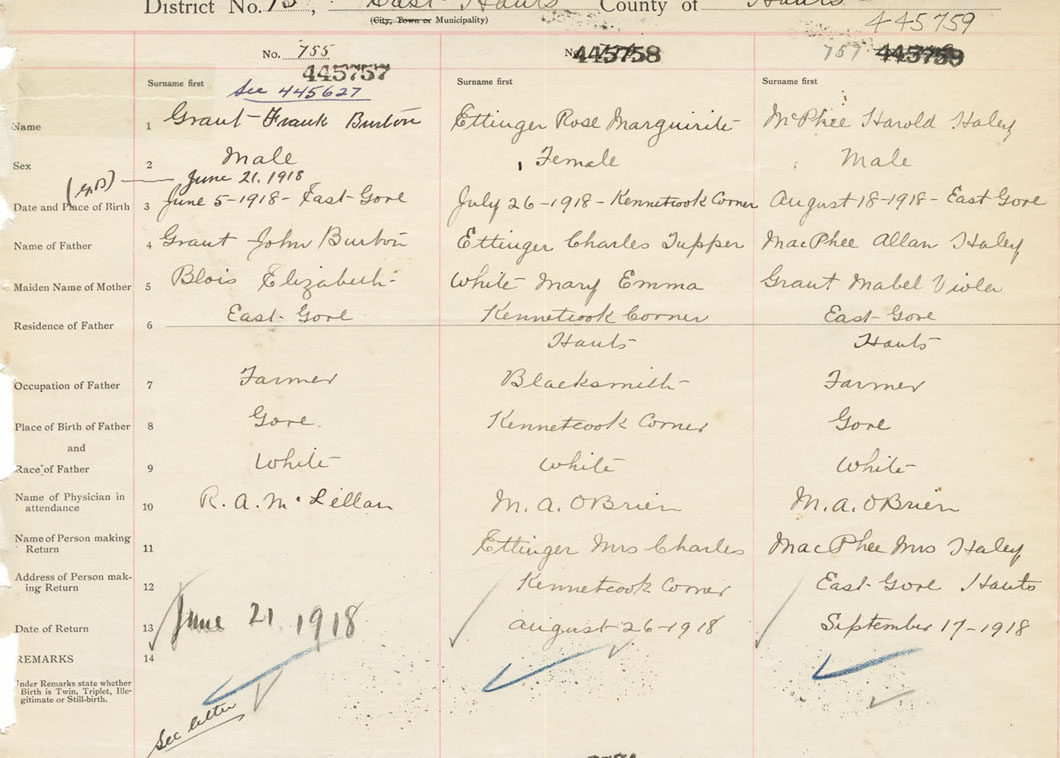 District No. 75, East Hants County of Hants
(City, Town or Municipality)
445759
No. 755 No. 445758 757 445759
445757
Surname first Surname first Surname first
See 445627
Name 1 Grant Frank Burton Ettinger Rose Marguirite McPhee Harold Haley
Sex 2 Male Female Male
June 21, 1918
Date and Place of Birth 3 June 5-1918- East Gore July 26-1918- Kennetcook Corner August 18-1918- East Gore
Name of Father 4 Grant John Burton Ettinger Charles Tupper MacPhee Allan Haley
Maiden Name of Mother 5 Blois Elizabeth White Mary Emma Grant Mabel Viola
Residence of Father 6 East Gore Kennetcook Corner East Gore
Hants Hants
Occupation of Father 7 Farmer Blacksmith Farmer
Place of Birth of Father 8 Gore. Kennetcook Corner Gore
and
Race of Father 9 White White White
Name of Physician in
attendance 10 R. A. McLellan M. A. OBrien M. A. OBrien
Name of Person making
Return 11 Ettinger Mrs Charles MacPhee Mrs Haley
Address of Person mak-
ing Return 12 Kennetcook Corner East Gore Hants
Date of Return 13 June 21, 1918 August 26-1918 September 17-1918
REMARKS 14
Under Remarks state whether
Birth is Twin, Triplet, Ille-
gitimate or Still-birth.
See letter